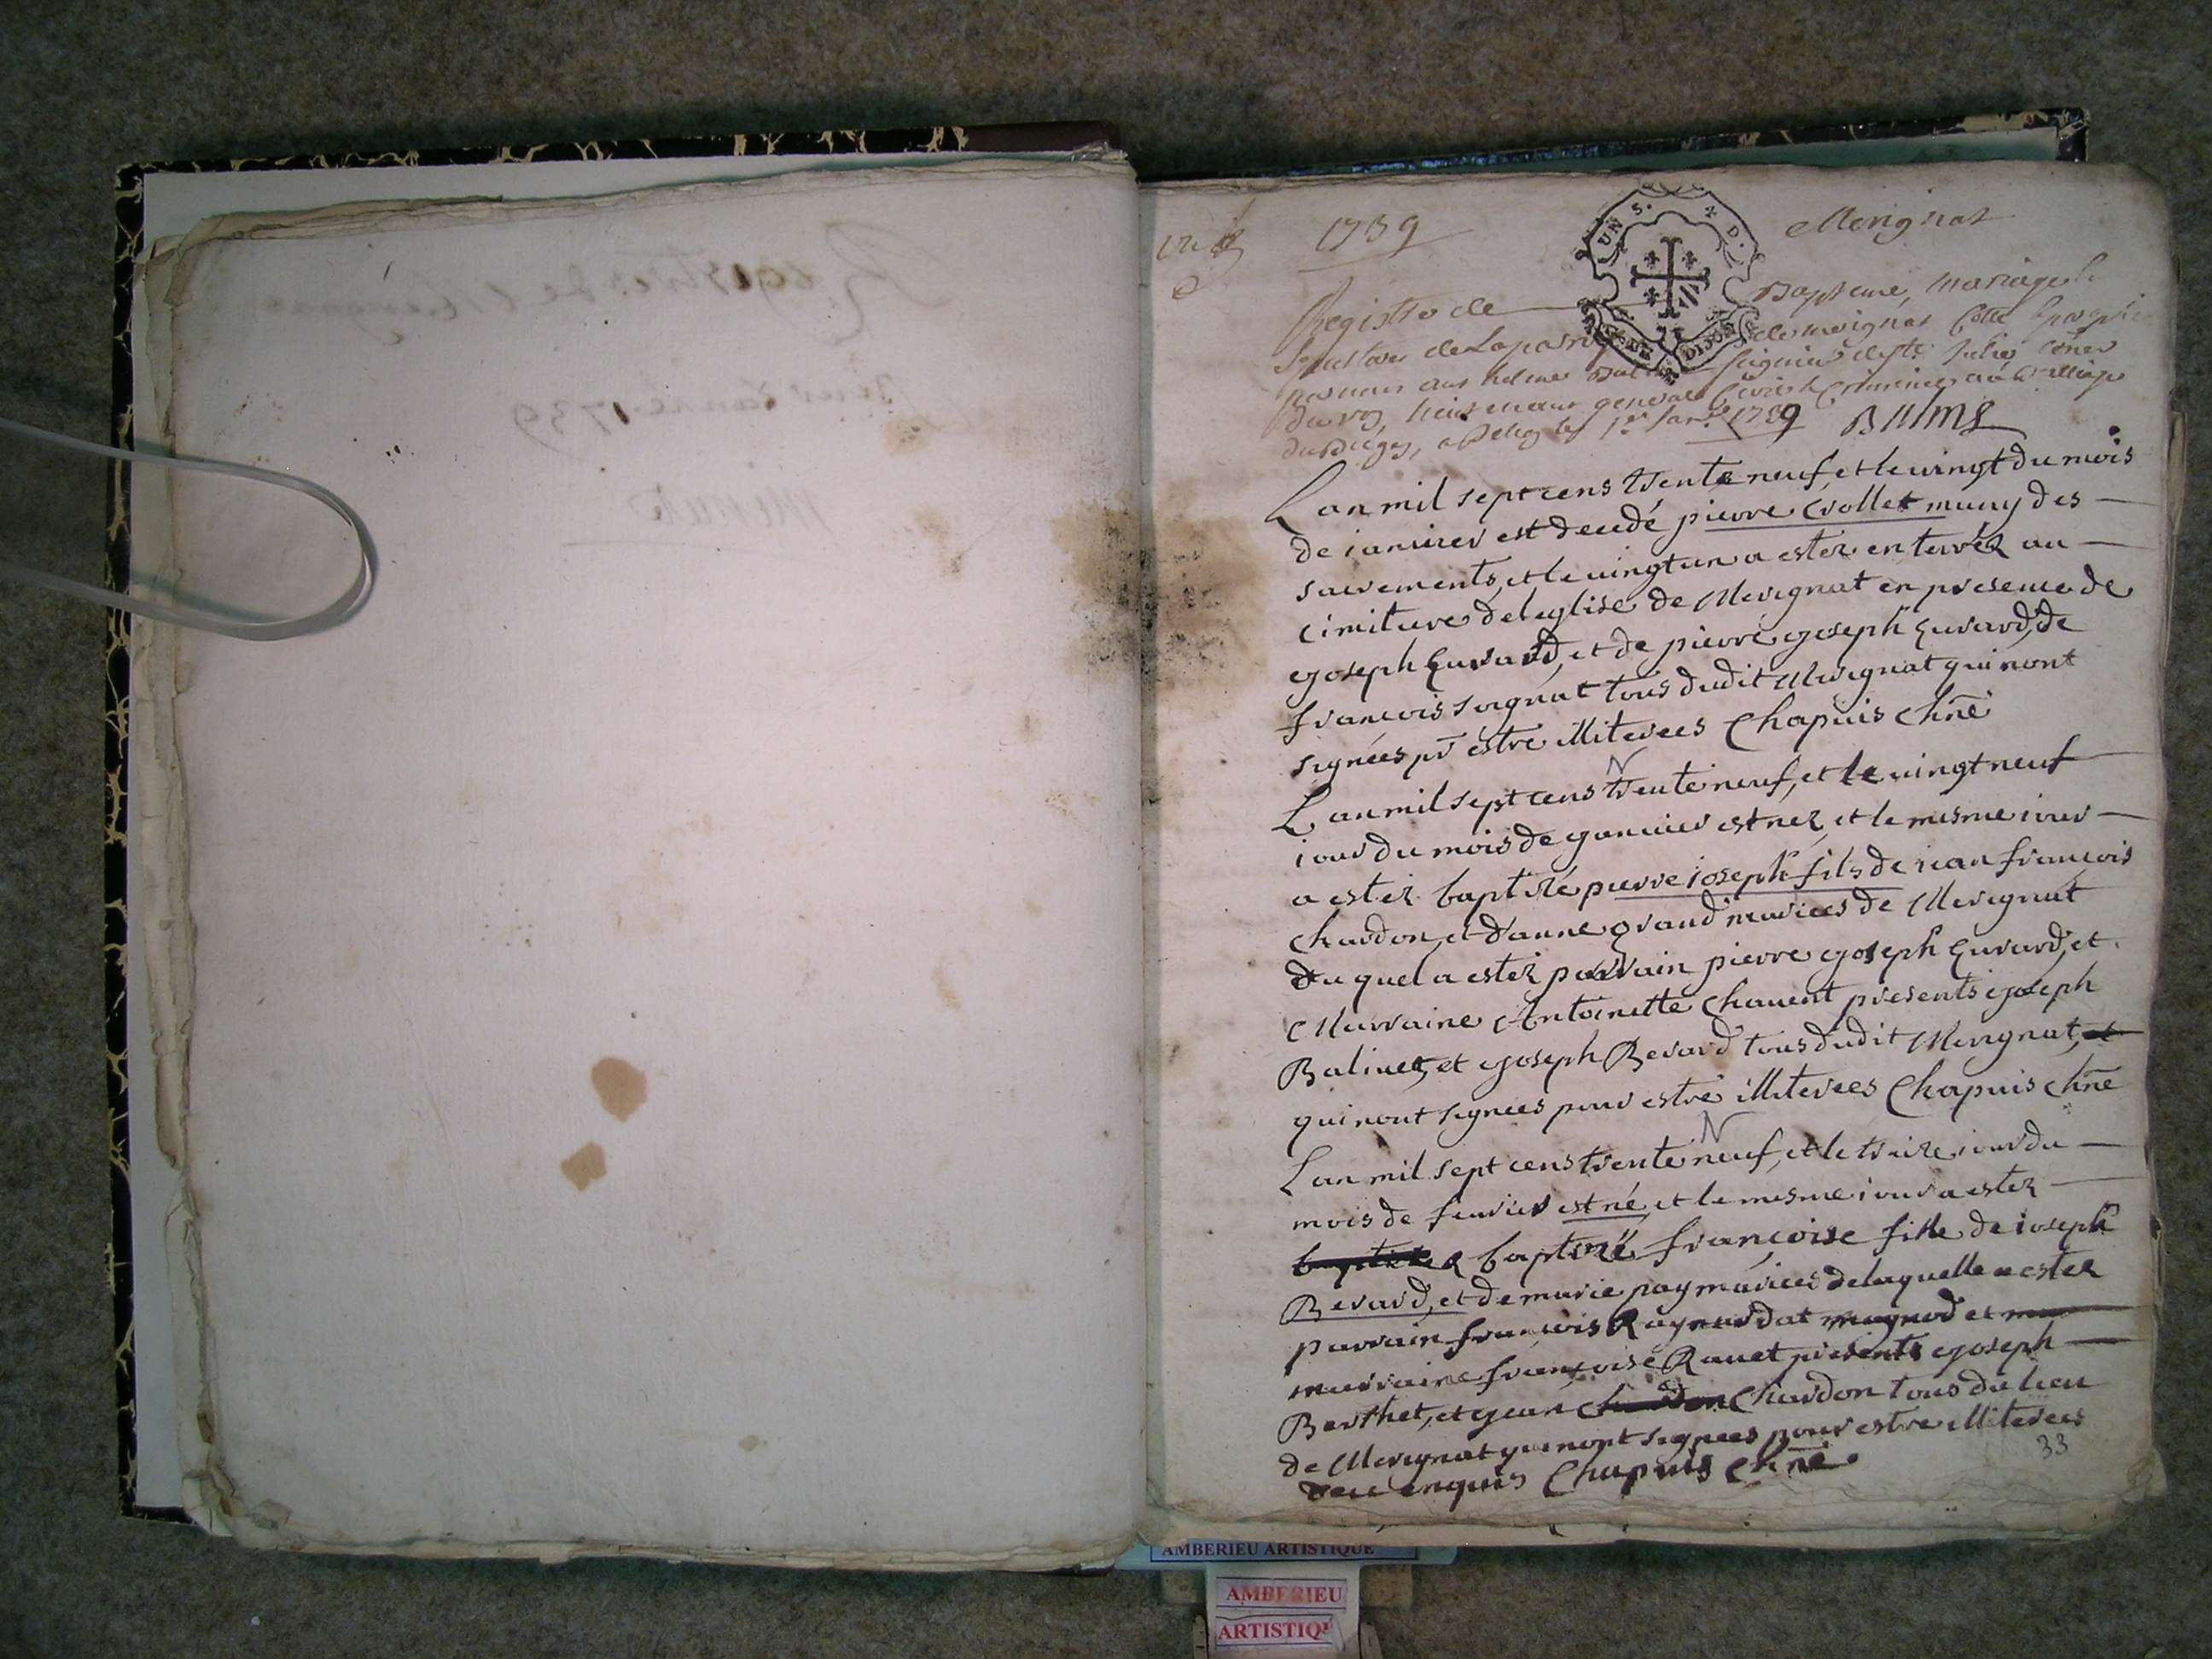 1739
Merignat
UN S. 4 D.
DIJON
Registre de Bapteme, mariage &
sepulture de la paroisse de merignat Cotté & paraphé
par nous
du roy, lieutenant general Civil & Criminel au Bailliage
du Bugey, a Belley le 1er Janr 1739
Lan mil sept cens trente neuf, et le vingt du mois
de ianvier est decedé pierre Crollet muny des
sacrements, et le vingt un a ester enterrez au
cimitiere de leglise de Merignat en presence de
Joseph Euvard, et de pierre Joseph Euvard, de
francois sorgnat tous dudit Merignat qui nont
signées pr estre illiterees Chapuis chne
N
Lan mil sept cens trente neuf, et le vingt neuf
iour du mois de Janvier est nez, et le mesme iour
a ester baptizé pierre ioseph fils de iean francois
chardon, et d'anne grand mariees de Merignat
du quel a ester parrain pierre Joseph Euvard, et
Marraine Antoinette Chavent presents Joseph
Balivet, et Joseph Berard tous dudit Merignat, et
qui nont signees pour estre illiterees Chapuis chne
N
Lan mil sept cens trente neuf, et le treize iour du
mois de fevrier est né, et le mesme iour a ester
baptizé françoise fille de ioseph
Berard, et de marie pay mariees de laquelle a ester
parrain francois Raynaud dat et
marraine françoise Ravet presents Joseph
Berthet, et Jean Chardon tous du lieu
de Merignat qui nont signees pour estre illiterees
de ce enquis Chapuis chne
33
AMBERIEU ARTISTIQUE
AMBERIEU
ARTISTIQ